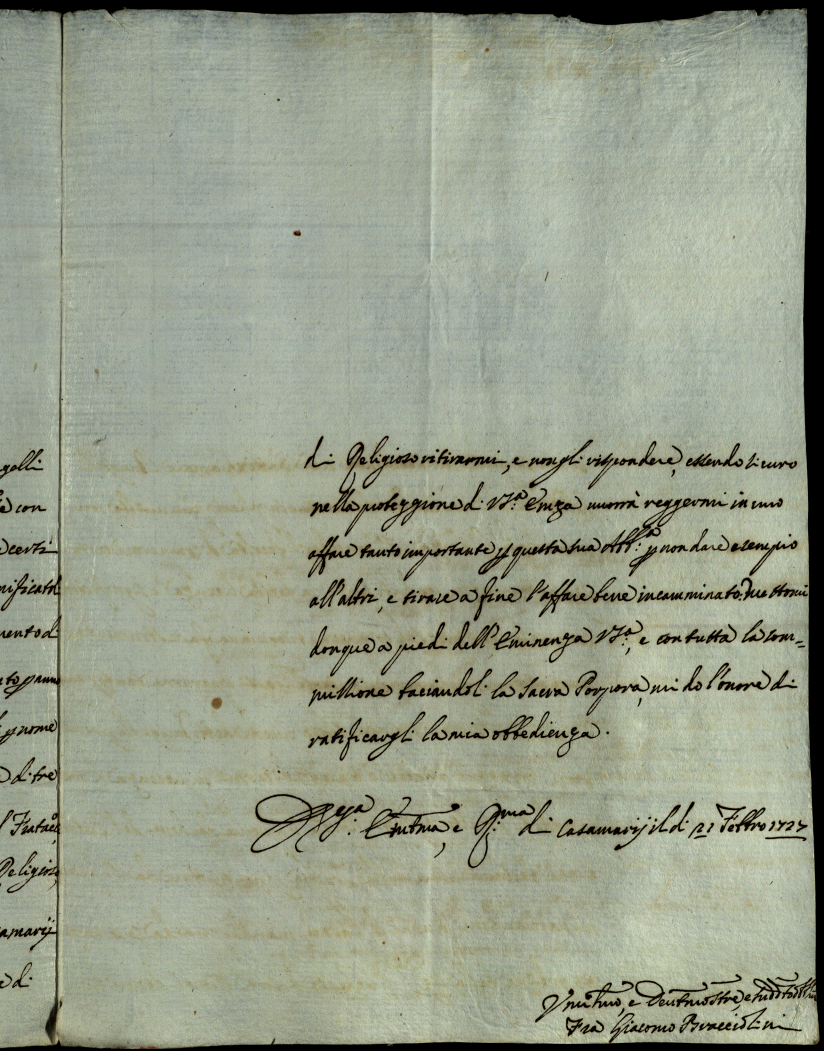 galli
e con
e certi
nificato
mento di
nome
e di tre
Religioso
amarij
e di
di Religioso ritirarmi, e non gli rispondere, essendo sicuro
nella protezzione di V.ra Emza vuorrà reggermi in uno
affare tanto importante p questa sua Abb.a p non dare esempio
all'altri, e tirare a fine l'affare bene incamminato.
donque a piedi dell'Eminenza V.ra, e con tutta la som=
missione baciandoli la Sacra Porpora, mi do l'onore di
ratificargli la mia obbedienza.
Emma, e R.ma di Casamarij il dì 21 Febbro 1727
Fra Giacomo Bracciolini